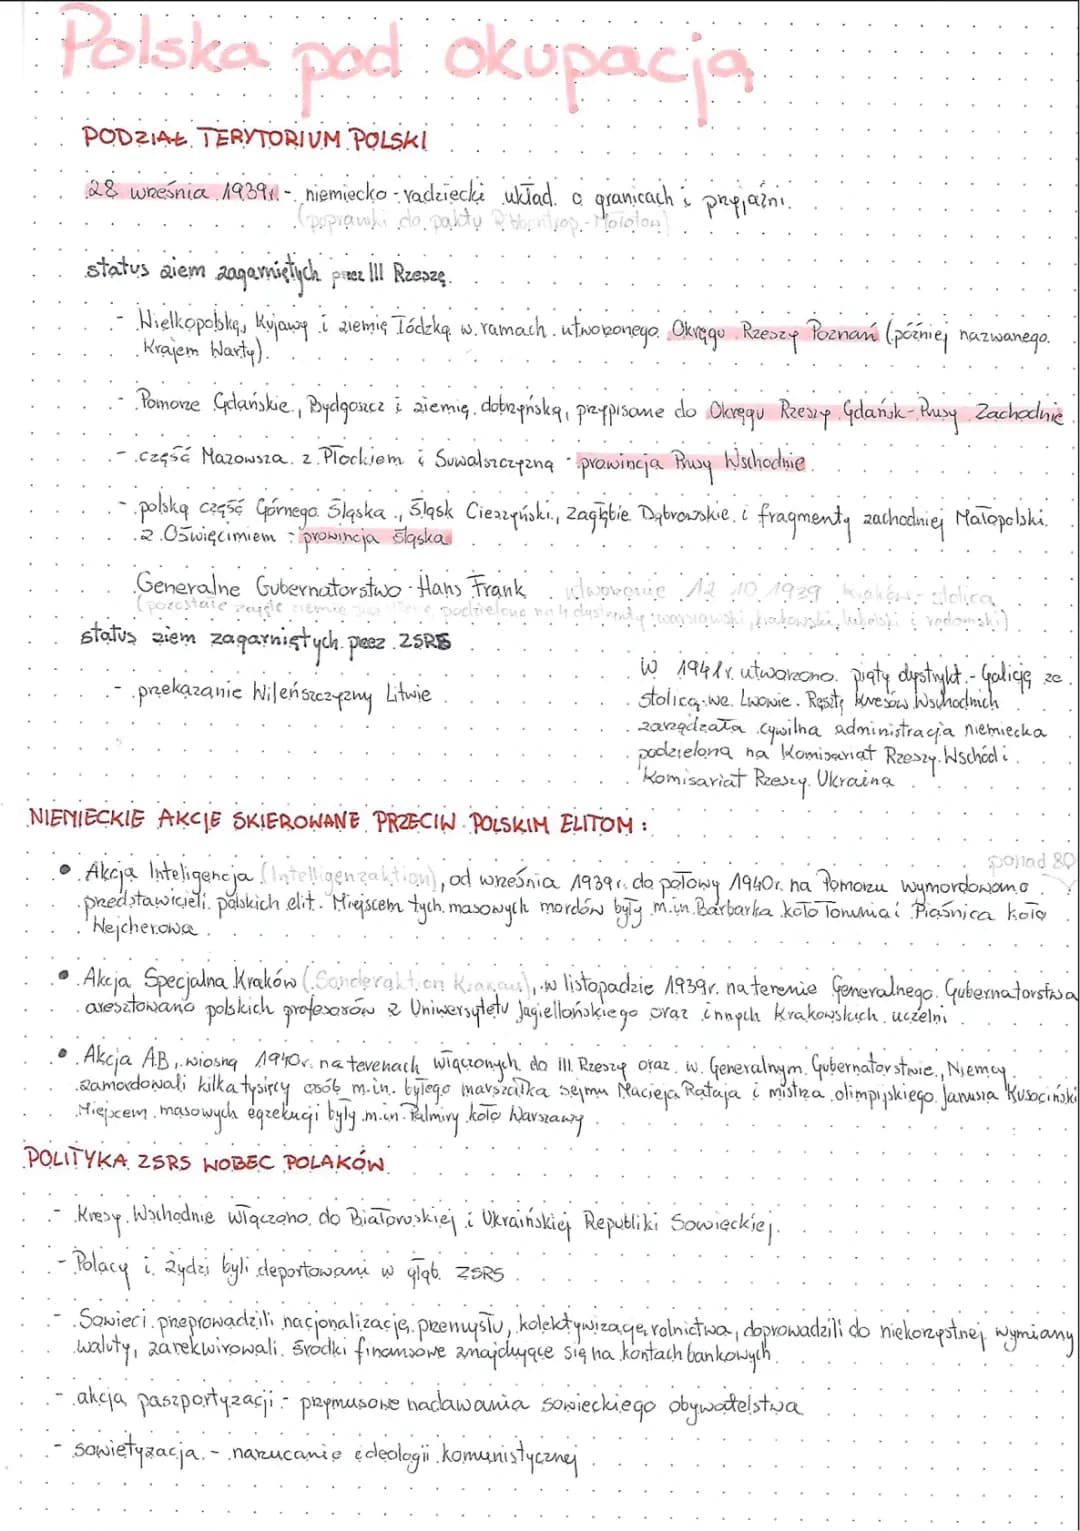 Polska pod okupacją
PODZIAŁ TERYTORIUM POLSKI
28 września 1939r. - niemiecko - radziecki układ o granicach i przyjaźni.
(poprawki do paktu Ribbentrop - Mołotow)
status ziem zagarniętych przez III Rzeszę.
- Wielkopolskę, Kujawy i ziemię łódzką w ramach utworzonego Okręgu Rzeszy Poznań (później nazwanego
Krajem Warty).
- Pomorze Gdańskie, Bydgoszcz i ziemię dobrzyńską, przypisane do Okręgu Rzeszy Gdańsk-Prusy Zachodnie
- część Mazowsza z Płockiem i Suwalszczyzną - prowincja Prusy Wschodnie
- polską część Górnego Śląska, Śląsk Cieszyński, Zagłębie Dąbrowskie i fragmenty zachodniej Małopolski
z Oświęcimiem - prowincja śląska
Generalne Gubernatorstwo - Hans Frank utworzenie 12 10 1939 Kraków - stolica
(pozostałe zajęte ziemie podzielone na 4 dystrykty: warszawski, krakowski, lubelski i radomski)
status ziem zagarniętych przez ZSRS
- przekazanie Wileńszczyzny Litwie
W 1941r. utworzono piąty dystrykt - Galicję ze
stolicą we Lwowie. Resztę kresów Wschodnich
zarządzała cywilna administracja niemiecka
podzielona na Komisariat Rzeszy Wschód i
Komisariat Rzeszy Ukraina
NIEMIECKIE AKCJE SKIEROWANE PRZECIW POLSKIM ELITOM:
ponad 80
• Akcja Inteligencja (Intelligenzaktion), od września 1939r. do połowy 1940r. na Pomorzu wymordowano
przedstawicieli polskich elit. Miejscem tych masowych mordów były m.in. Barbarka koło Torunia i Piaśnica koło
Wejherowa
• Akcja Specjalna Kraków (Sonderaktion Krakau), w listopadzie 1939r. na terenie Generalnego Gubernatorstwa
aresztowano polskich profesorów z Uniwersytetu Jagiellońskiego oraz innych krakowskich uczelni
• Akcja AB, wiosną 1940r. na terenach włączonych do III Rzeszy oraz w Generalnym Gubernatorstwie, Niemcy
zamordowali kilka tysięcy osób m.in. byłego marszałka sejmu Macieja Rataja i mistrza olimpijskiego Janusza Kusociński
Miejscem masowych egzekucji były m.in. Palmiry koło Warszawy
POLITYKA ZSRS WOBEC POLAKÓW
- Kresy Wschodnie włączono do Białoruskiej i Ukraińskiej Republiki Sowieckiej.
- Polacy i żydzi byli deportowani w głąb ZSRS
- Sowieci przeprowadzili nacjonalizację przemysłu, kolektywizację rolnictwa, doprowadzili do niekorzystnej wymiany
waluty, zarekwirowali środki finansowe znajdujące się na kontach bankowych
- akcja paszportyzacji - przymusowe nadawania sowieckiego obywatelstwa
- sowietyzacja - narzucanie ideologii komunistycznej